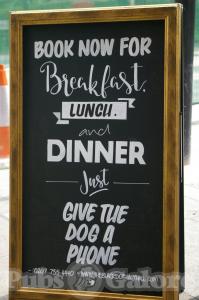 BOOK NOW FOR
Breakfast,
LUNCH.
and
DINNER
Just
GIVE THE
DOG A
PHONE
Pubs Galore